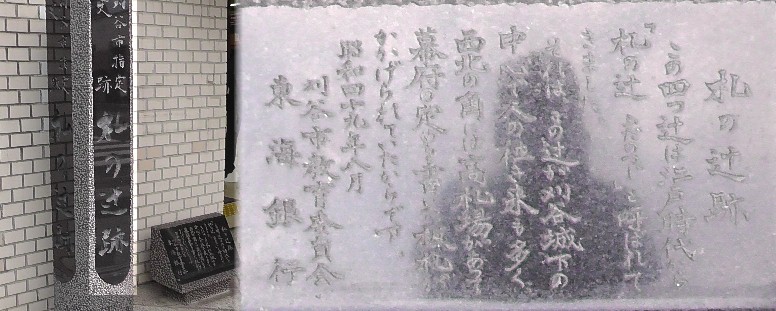 刈谷市指定
史跡
札の辻跡
札の辻跡
この四つ辻は江戸時代に
「札の辻」
と呼ばれて
きました
この辻が刈谷城下の
中心で人の往き来も多く
西北の角には高札場があって
幕府の定めを書いた制札が
かかげられていたからです
昭和四十九年八月
刈谷市教育委員会
東海銀行